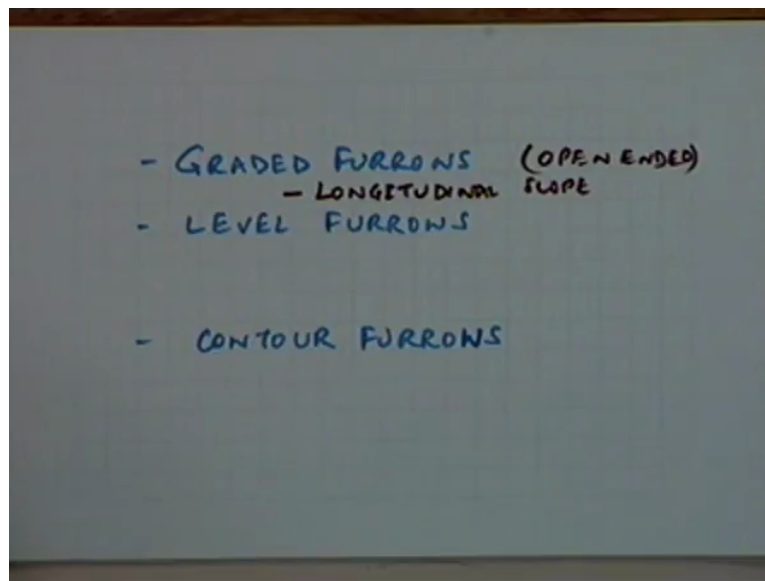 - GRADED FURROWS (OPEN ENDED)
- LONGITUDINAL SLOPE
- LEVEL FURROWS
- CONTOUR FURROWS